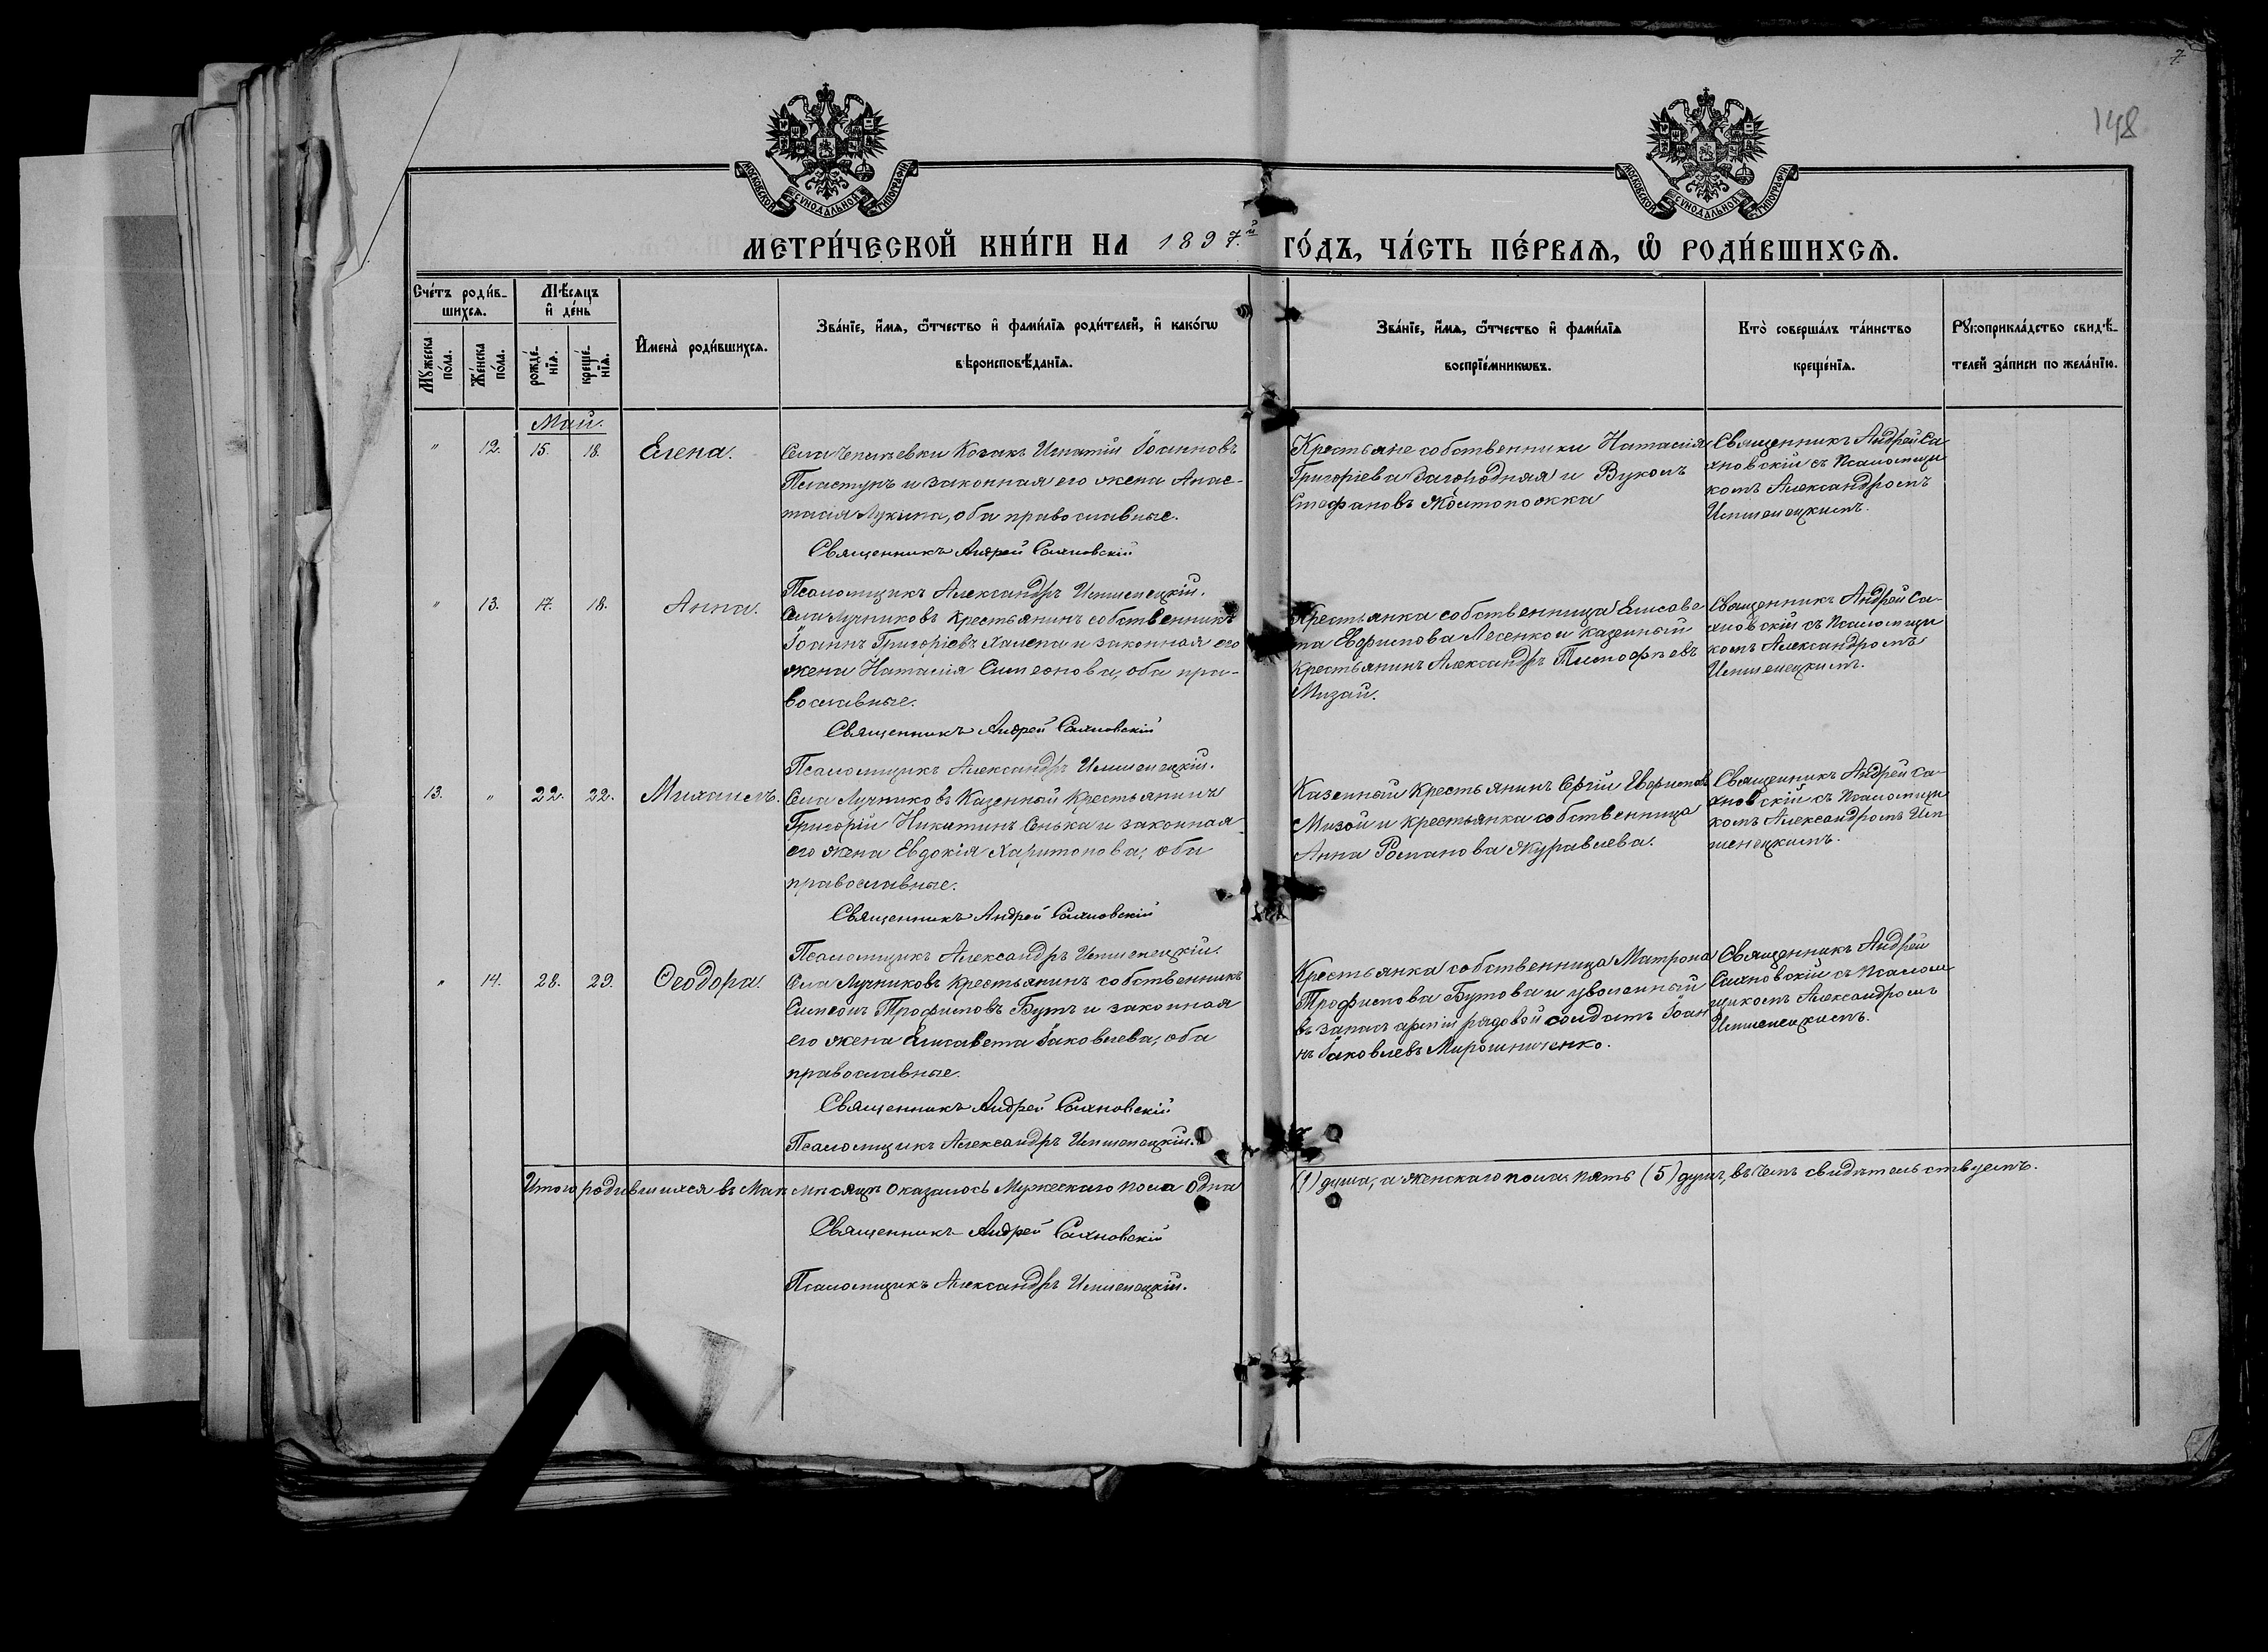 7.
148
МОСКОВСКОЙ СѴНОДАЛЬНОЙ ТИПОГРАФІИ
МОСКОВСКОЙ СѴНОДАЛЬНОЙ ТИПОГРАФІИ
МЕТРИ́ЧЕСКОЙ КНИ́ГИ НА 1897.й ГО́ДЪ, ЧА́СТЬ ПЕ́РВАЯ, Ѡ РОДИ́ВШИХСЯ.
Сче́тъ роди́в-
шихся.
Мꙋ́жеска
по́ла.
Же́нска
по́ла.
Мѣ́сяцъ
и҆ де́нь
рожде́-
нїя.
креще́-
нїя.
И҆мена̀ роди́вшихся.
Зва́нїе, и҆́мя, ѻ҆́тчество и҆ фами́лїя роди́телей, и҆ како́гѡ
вѣроисповѣ́данїя.
Зва́нїе, и҆́мя, ѻ҆́тчество и҆ фами́лїя
воспрїе́мникѡвъ.
Кто̀ соверша́лъ та́инство
креще́нїя.
Рꙋкоприкла́дство свидѣ́-
телей за́писи по жела́нїю.
Май.
" 12. 15. 18. Елена.
Села Козакъ Игнатій Іоанновъ
Пластунъ и законная его жена Анас-
тасія Лукина, оба православные.
Священникъ Андрей Сахновскій
Псаломщикъ Александръ
Крестьяне собственники Наталія
Григоріева Загородняя и Вуколъ
Стефановъ
Священникъ Андрей Са-
хновскій съ Псаломщи
комъ Александромъ
" 13. 17. 18. Анна.
Села Лучниковъ Крестьянинъ собственникъ
Іоаннъ Григоріевъ Халепа и законная его
жена Наталія Симеонова, оба пра-
вославные.
Священникъ Андрей Сахновскій
Псаломщикъ Александръ
Крестьянка собственница Елисаве
та Евфимова Лесенко и казенный
Крестьянинъ Александръ Тимофѣевъ
Мизай.
Священникъ Андрей Са-
хновскій съ Псаломщи
комъ Александромъ
13. " 22. 22. Михаилъ.
Села Лучниковъ Казенный Крестьянинъ
Григорій Никитинъ Сенька и законная
его жена Евдокія Харитонова, оба
православные.
Священникъ Андрей Сахновскій
Псаломщикъ Александръ
Казенный Крестьянинъ Сергій Евфимовъ
Мизой и крестьянка собственница
Анна Романова Журавлева.
Священникъ Андрей Са-
хновскій съ Псаломщи
комъ Александромъ
" 14. 28. 29. Ѳеодора.
Села Лучниковъ Крестьянинъ собственникъ
Симеонъ Трофимовъ Бутъ и законная
его жена Елисавета Іаковлева, оба
православные.
Священникъ Андрей Сахновскій
Псаломщикъ Александръ
Крестьянка собственница Матрона
Трофимова Бутова и уволенный
въ запасъ арміи рядовой солдатъ Іоан
нъ Іаковлевъ Мирошниченко.
Священникъ Андрей
Сахновскій съ Псалом
щикомъ Александромъ
Итого родившихся въ Маѣ мѣсяцѣ оказалось Мужескаго пола Одна (1) душа, а женскаго пола, пять (5) душъ, въ чемъ свидѣтельствуемъ.
Священникъ Андрей Сахновскій
Псаломщикъ Александръ